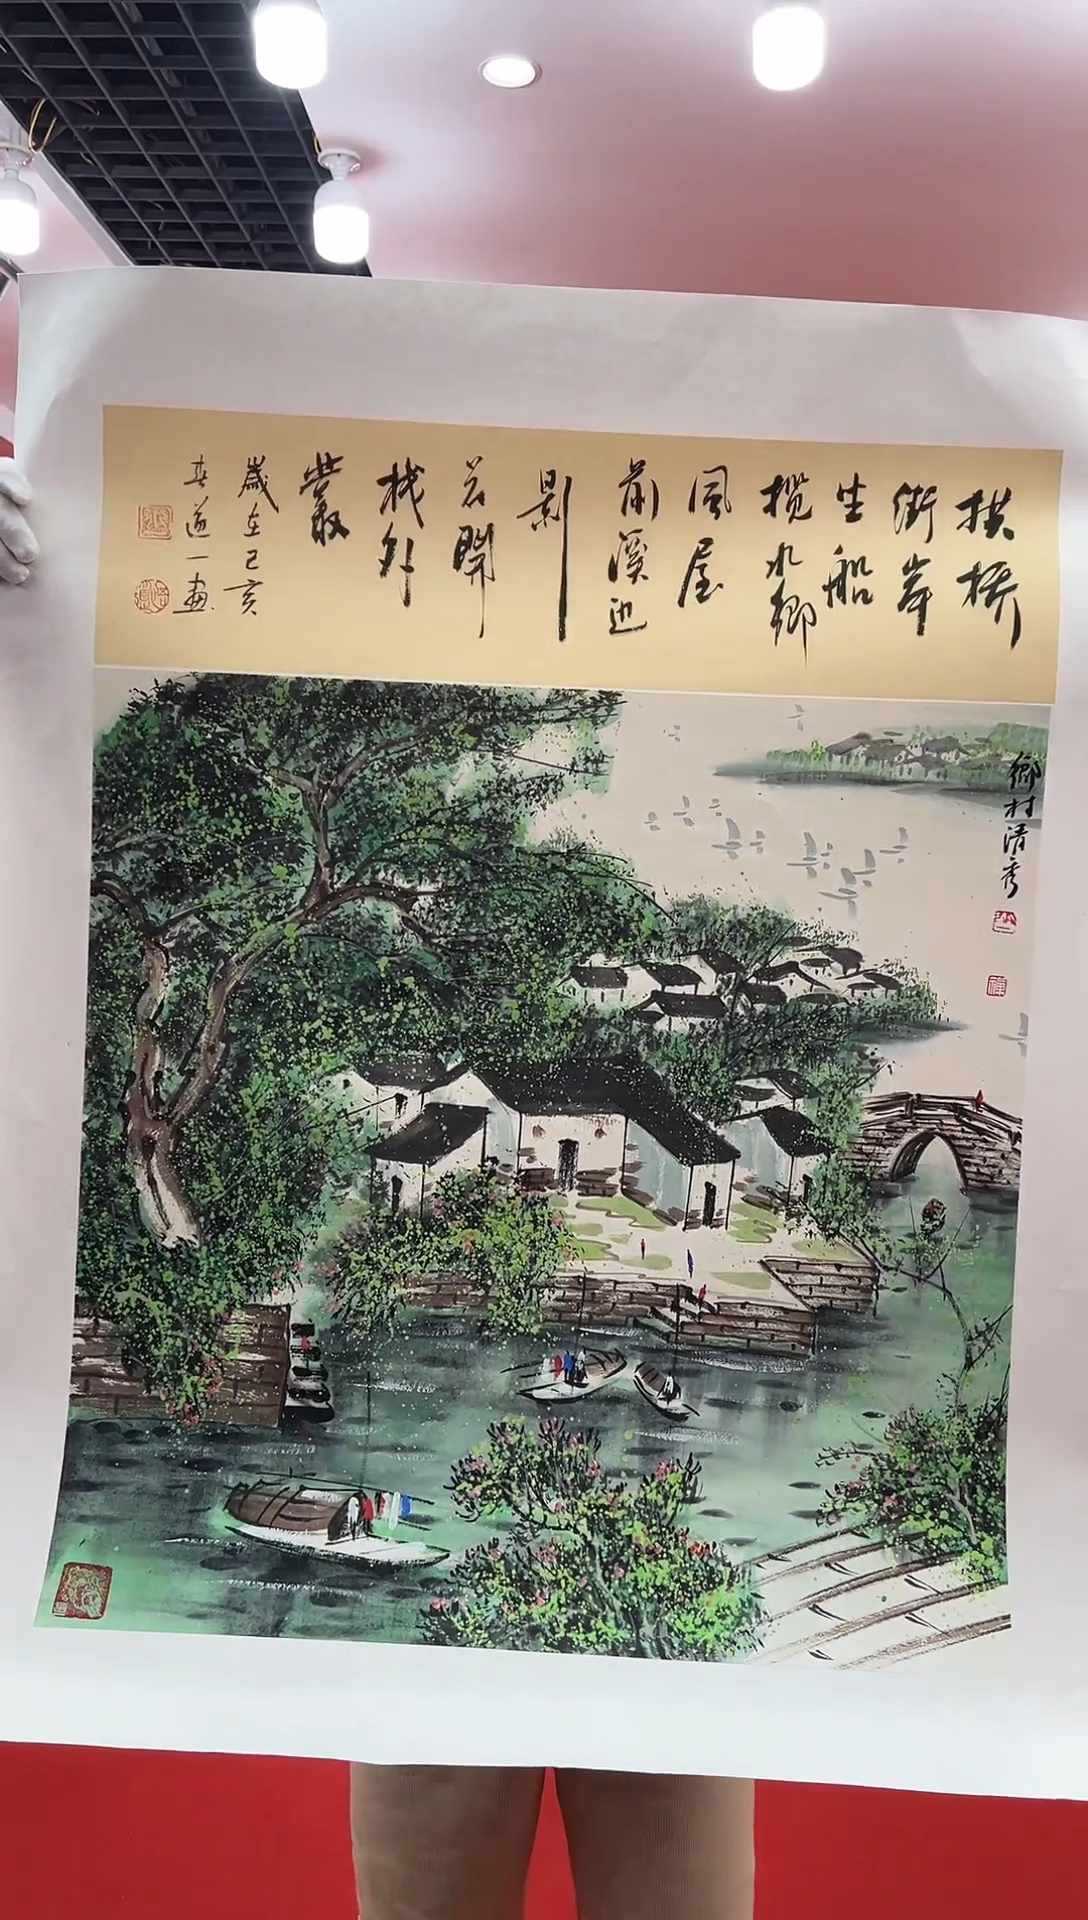 拱橋
街岸
生船
攬水鄉
風屋
前溪迎
影
若開
棧外
叢
歲在己亥
春道一畫
鄉村清秀